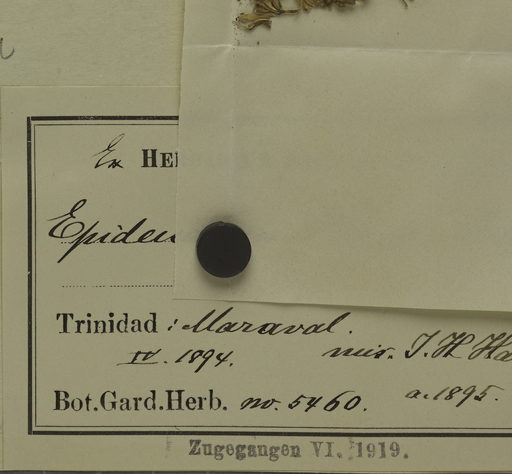 Ex HE
Epiden
Trinidad : Maraval.
IV. 1894. mis. J. H. Ha
Bot.Gard.Herb. no. 5460. a. 1895.
Zugegangen VI. 1919.